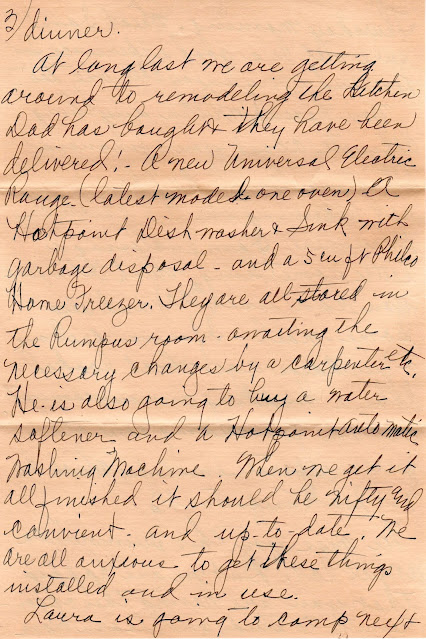 3/ dinner.
At long last we are getting
around to remodeling the kitchen
Dad has bought & they have been
delivered! - A new Universal Electric
Range (latest model - one oven) A
Hotpoint Dishwasher & Sink with
garbage disposal - and a 5 cu ft Philco
Home Freezer. They are all stored in
the Rumpus room - awaiting the
necessary changes by a carpenter etc.
He is also going to buy a water
softener and a Hotpoint automatic
Washing Machine. When we get it
all finished it should be nifty and
convient - and up-to-date. We
are all anxious to get these things
installed and in use.
Laura is going to camp next